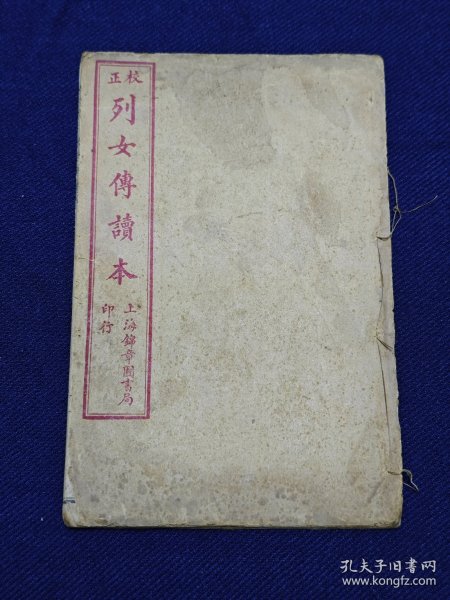 校正
列女傳讀本
上海錦章圖書局
印行
孔夫子旧书网
www.kongfz.com